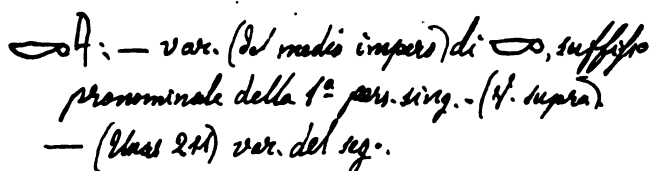 𓎡𓀀: — var. (del medio impero) di 𓎡, suffisso
pronominale della 1ª pers. sing. - (V. supra)
— (Unas 211) var. del seg.